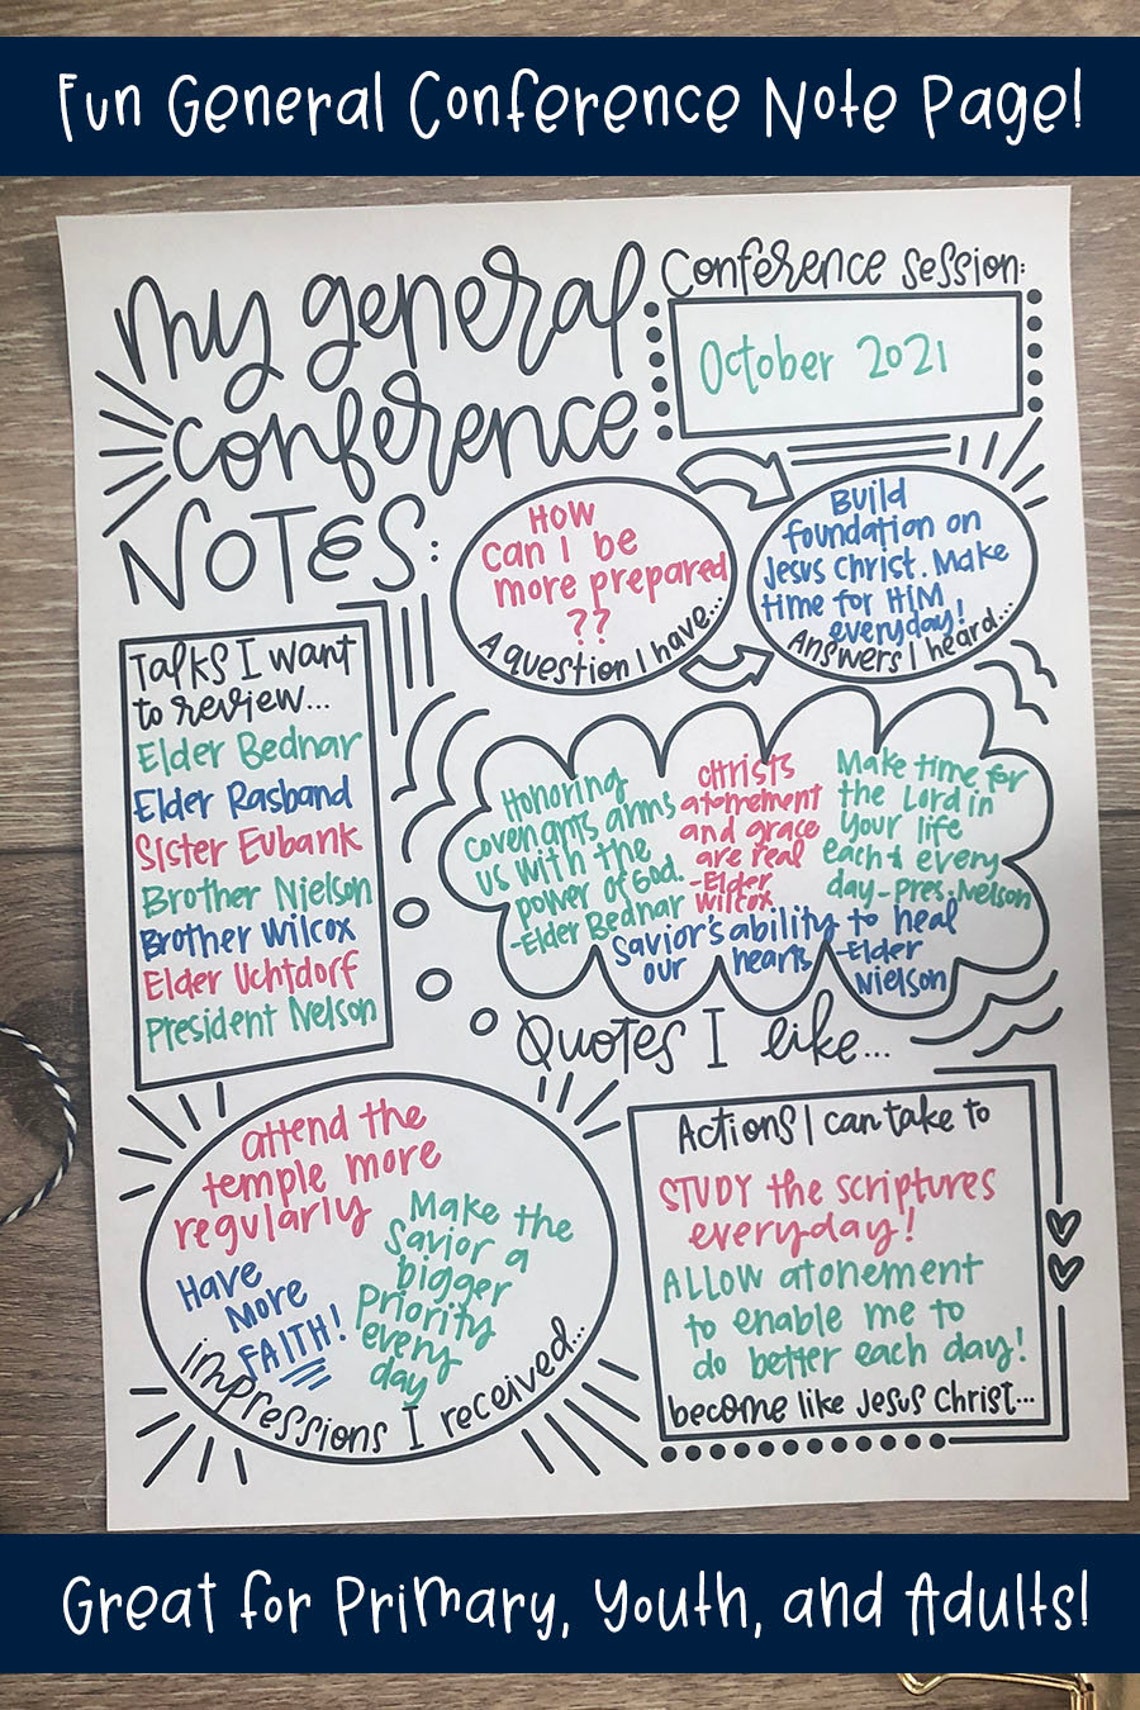 Fun General Conference Note Page!
My general
conference
NOTES:
Conference Session:
October 2021
HOW
can I be
more prepared
??
A question I have...
Build
foundation on
Jesus Christ. Make
time for HIM
everyday!
Answers I heard...
Talks I want
to review...
Elder Bednar
Elder Rasband
Sister Eubank
Brother Nielson
Brother Wilcox
Elder Uchtdorf
President Nelson
Honoring
covenants arms
us with the
power of God.
-Elder Bednar
Christs
atonement
and grace
are real
-Elder
Wilcox
Make time for
the Lord in
your life
each & every
day-Pres. Nelson
Savior's ability to heal
our hearts -Elder
Nielson
Quotes I like...
attend the
temple more
regularly
Have
More
FAITH!
Make the
Savior a
bigger
Priority
every
day
impressions I received...
Actions I can take to
STUDY the scriptures
everyday!
ALLOW atonement
to enable me to
do better each day!
become like Jesus Christ...
Great for Primary, Youth, and Adults!